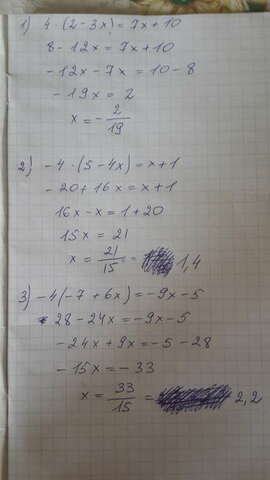 1) 4 · (2 - 3x) = 7x + 10
8 - 12x = 7x + 10
- 12x - 7x = 10 - 8
- 19x = 2
x = - 2/19
2) - 4 · (5 - 4x) = x + 1
- 20 + 16x = x + 1
16x - x = 1 + 20
15x = 21
x = 21/15 = 1,4
3) - 4(-7 + 6x) = -9x - 5
28 - 24x = -9x - 5
- 24x + 9x = - 5 - 28
- 15x = - 33
x = 33/15 = 2,2